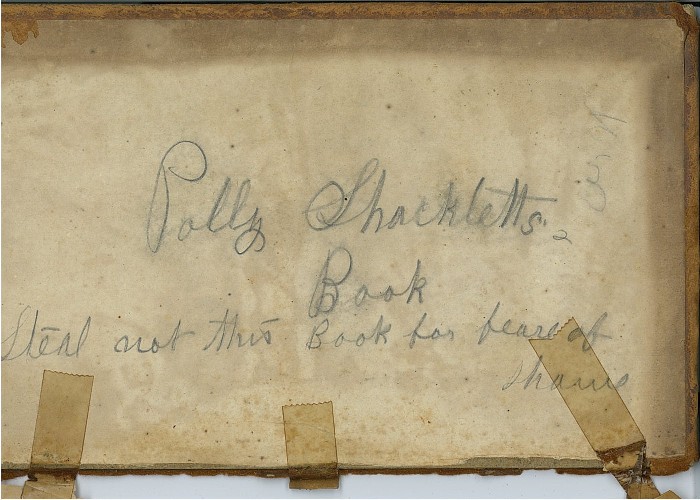 Polly Shackletts
Book
Steal not this Book for feare of
shame